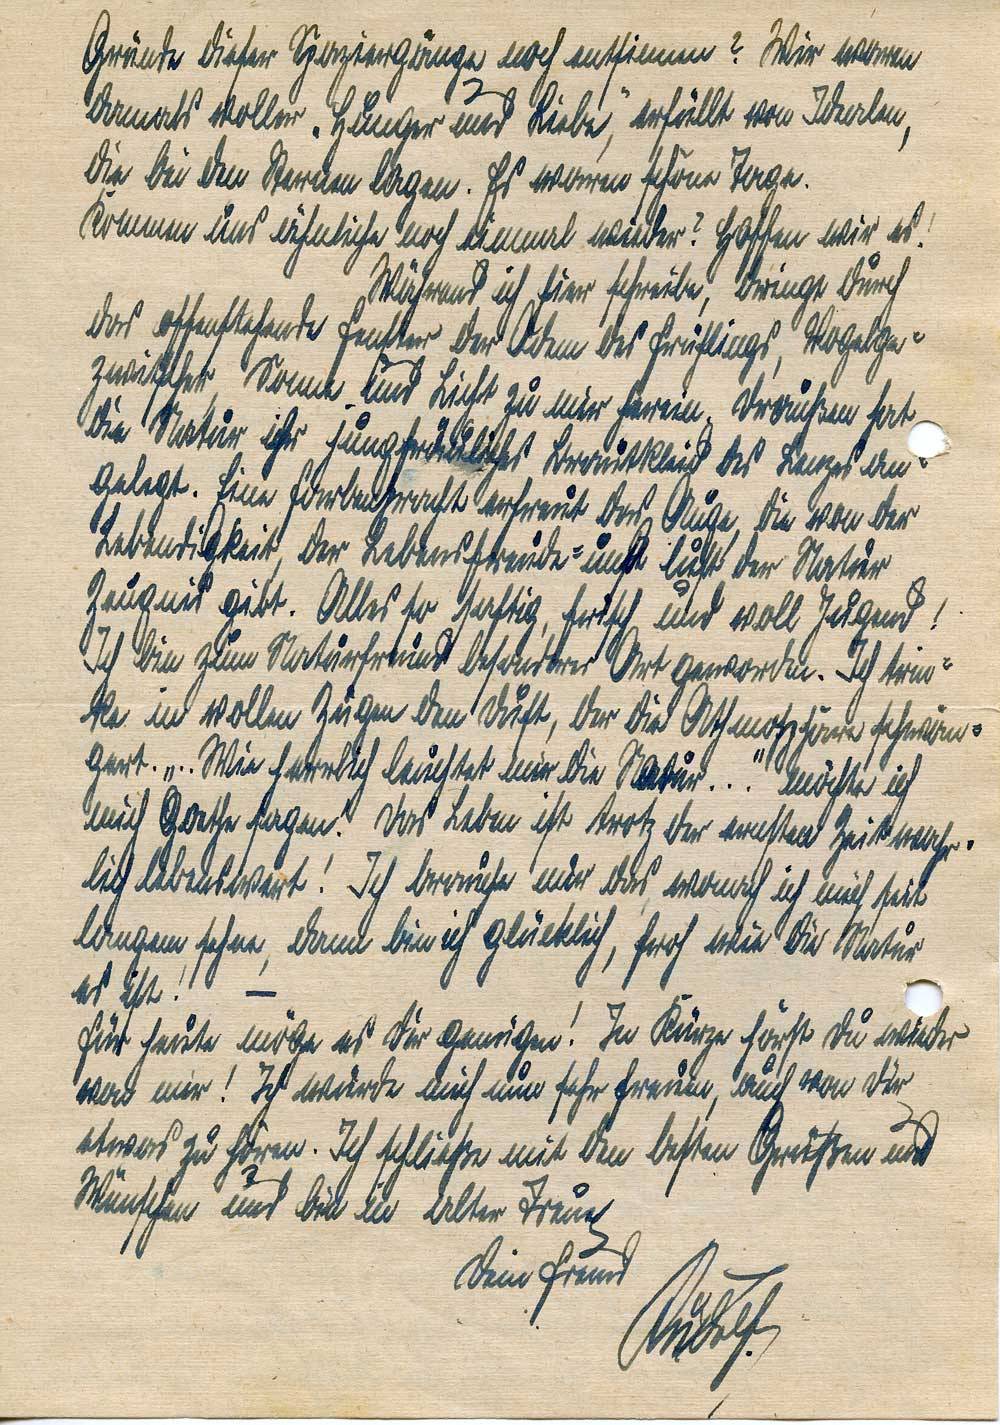 Gründe dieser Spaziergänge noch entsinnen? Wir waren
damals voller „Hunger und Liebe", erfüllt von Idealen,
die bei den Sternen lagen. Es waren schöne Tage.
Kommen uns ähnliche noch einmal wieder? Hoffen wir es!
Während ich hier schreibe, dringt durch
das offenstehende Fenster der Odem des Frühlings, Vogelge-
zwitscher, Sonne und Licht zu mir herein. Draußen hat
die Natur ihr jungfräuliches Brautkleid des Lenzes an-
gelegt. Eine Farbenpracht erfreut das Auge, die von der
Lebendigkeit, der Lebensfreude- und lust der Natur
Zeugnis gibt. Alles so saftig, frisch und voll Jugend!
Ich bin zum Naturfreund besonderer Art geworden. Ich trin-
ke in vollen Zügen den Duft, der die Athmosphäre schwän-
gert. „.. Wie herrlich leuchtet mir die Natur..." möchte ich
mich Goethe sagen! Das Leben ist trotz der ernsten Zeit wahr-
lich lebenswert! Ich brauche nur das, wonach ich mich seit
langem sehne, dann bin ich glücklich, froh wie die Natur
es ist! —
Für heute möge es Dir genügen! In Kürze hörst Du wieder
von mir! Ich würde mich nun sehr freuen, auch von Dir
etwas zu hören. Ich schließe mit den besten Grüßen und
Wünschen und bin in alter Treue
Dein Freund
Rudolf.